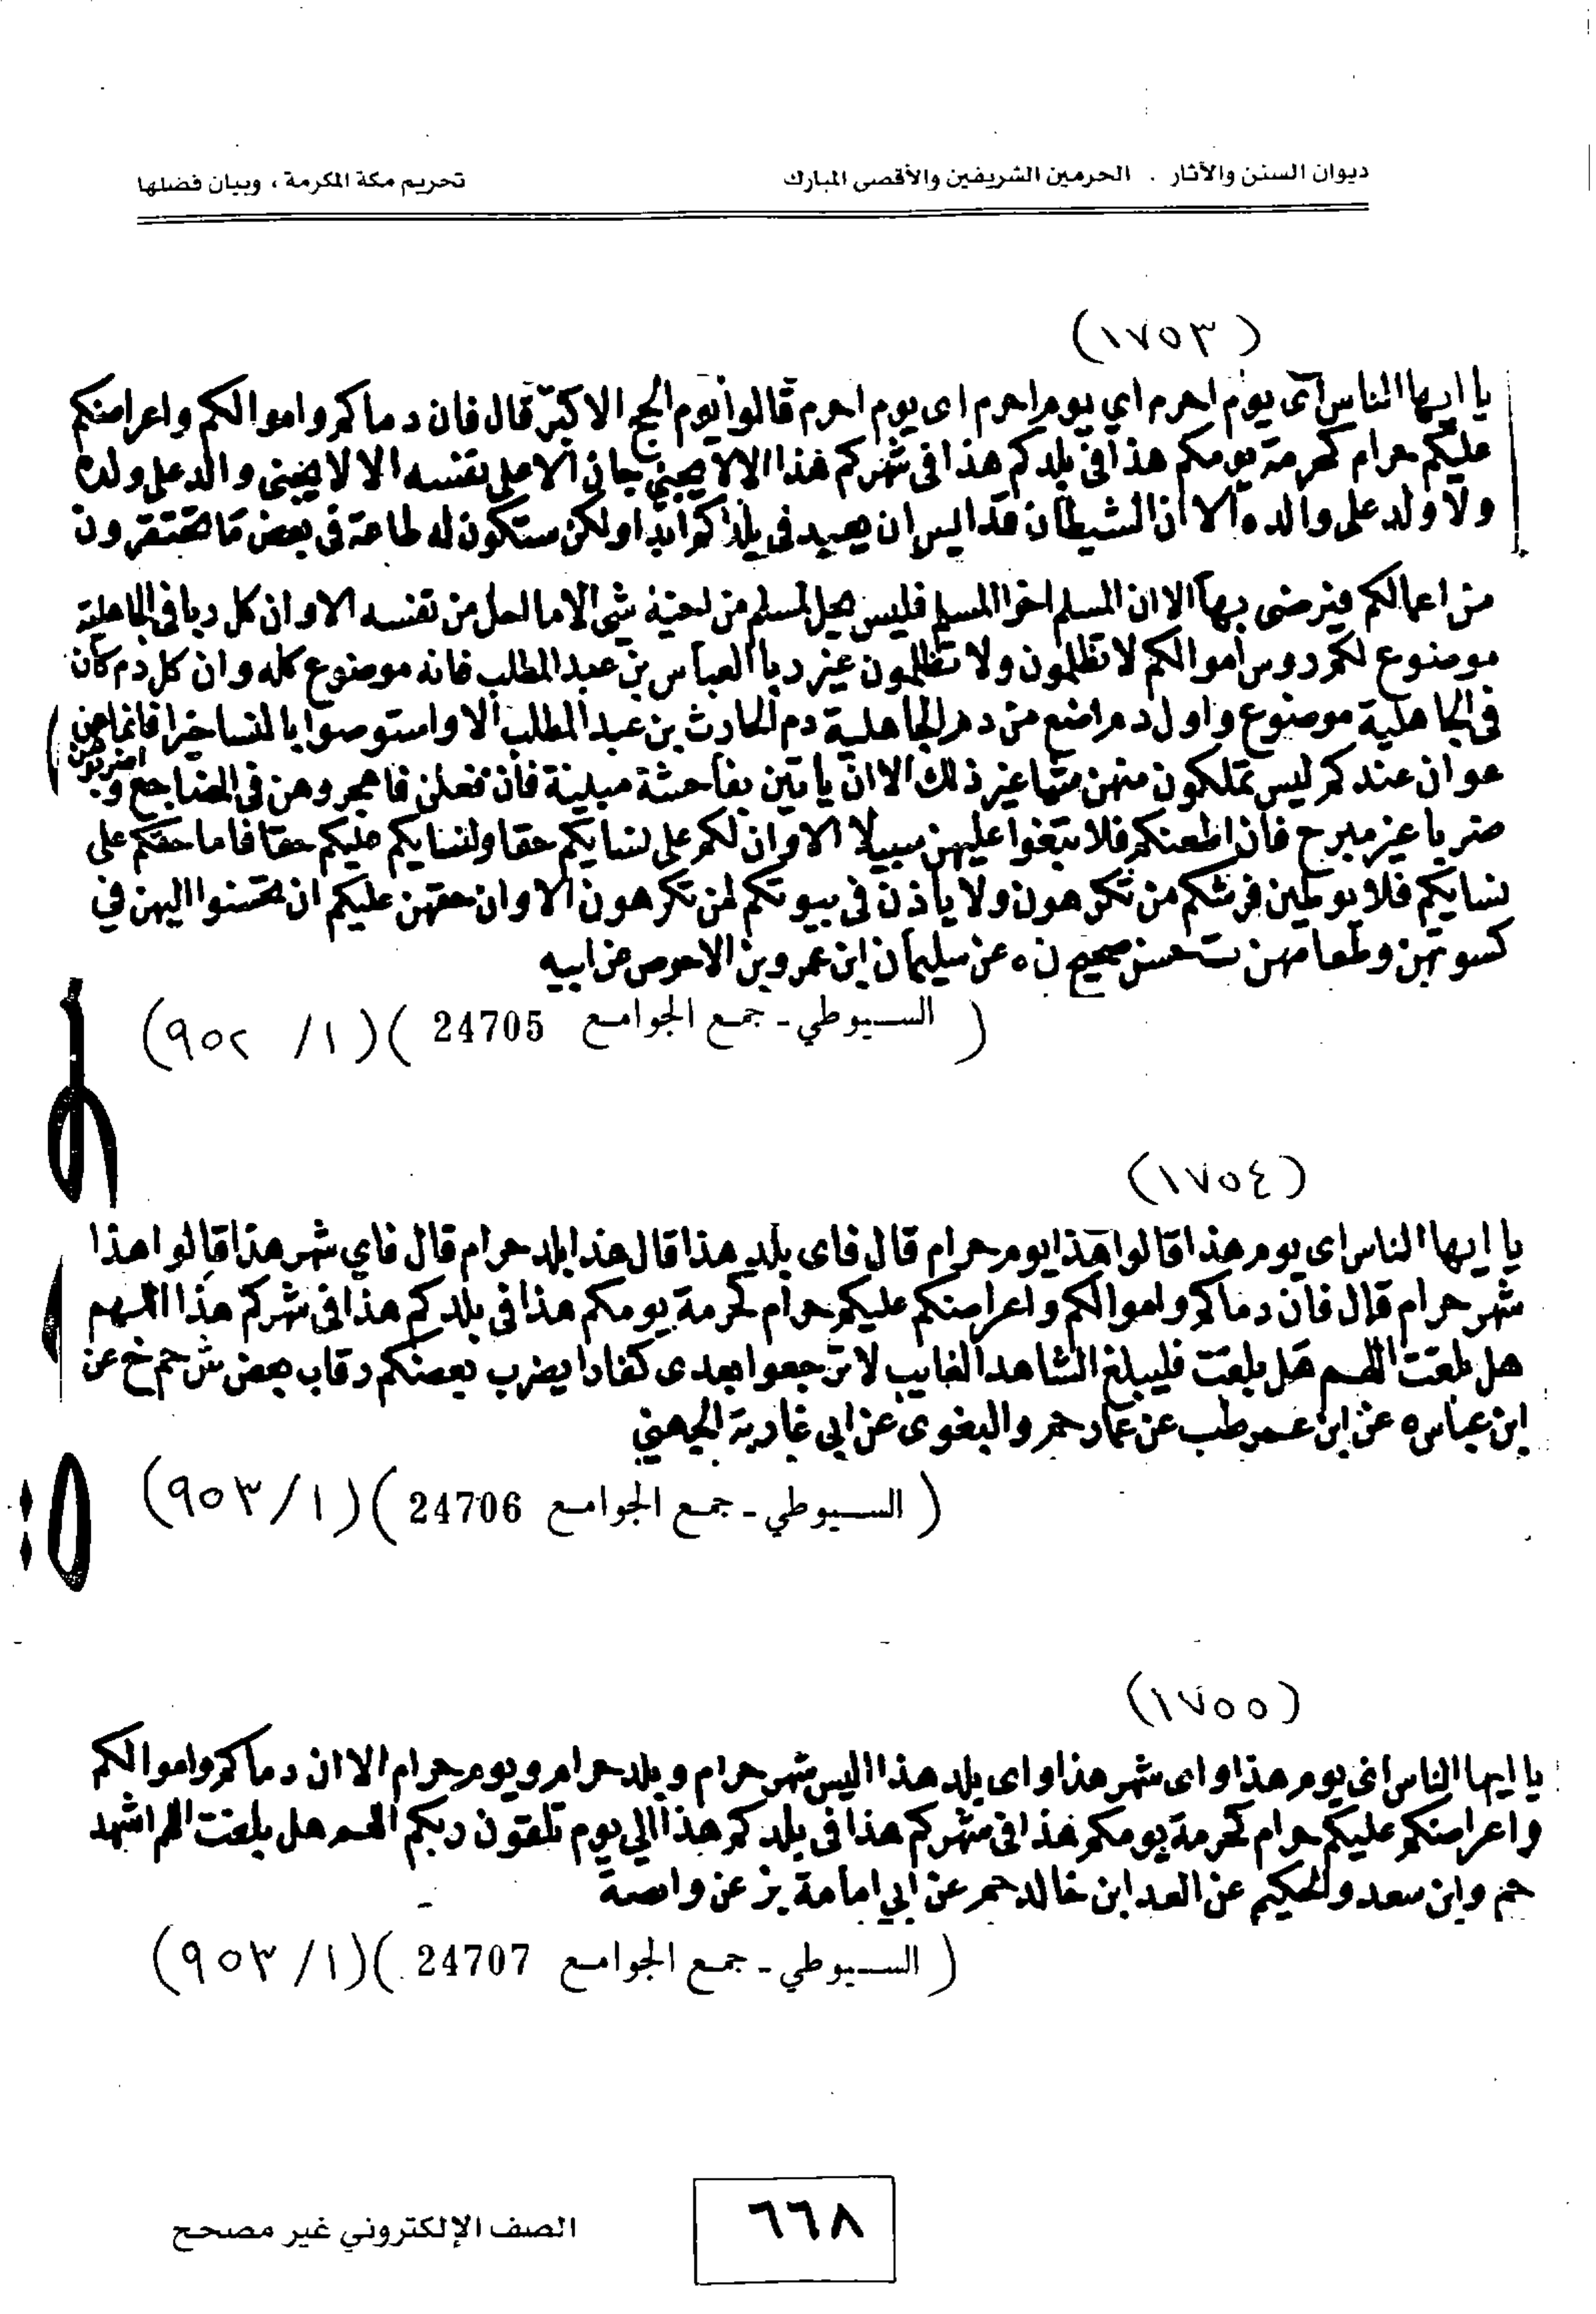 ديوان السنن والآثار . الحرمين الشريفين والأقصى المبارك تحريم مكة المكرمة ، وبيان فضلها
(١٧٥٣)
يا ايها الناس اى يوم احرم اي يوم احرم اى يوم احرم قالوا يوم الحج الاكبر قال فان دماكم واموالكم واعراضكم
عليكم حرام كحرمة يومكم هذا فى بلدكم هذا فى شهركم هذا الا لا يجني جان الا على نفسه الا لا يجنى والد على ولده
ولا ولد على والده الا ان الشيطان قد ايس ان يعبد فى بلدكم ابدا ولكن ستكون له طاعة فى بعض ما تحتقرون
من اعمالكم فيرضى بها الا ان المسلم اخو المسلم فليس يحل لمسلم من اخيه شى الا ما احل من نفسه الا وان كل ربا فى الجاهلية
موضوع لكم روس اموالكم لا تظلمون ولا تظلمون غير ربا العباس بن عبد المطلب فانه موضوع كله وان كل دم كان
فى الجاهلية موضوع واول دم اضع من دم الجاهلية دم الحارث بن عبد المطلب الا واستوصوا بالنسا خيرا فانما هن
عوان عندكم ليس تملكون منهن شيا غير ذلك الا ان ياتين بفاحشة مبينة فان فعلن فاهجروهن فى المضاجع واضربوهن
ضربا غير مبرح فان اطعنكم فلا تبغوا عليهن سبيلا الا وان لكم على نسايكم حقا ولنسايكم عليكم حقا فاما حقكم على
نسايكم فلا يوطين فرشكم من تكرهون ولا ياذن فى بيوتكم لمن تكرهون الا وان حقهن عليكم ان تحسنوا اليهن في
كسوتهن وطعامهن ت حسن صحيح ن ه عن سليمان ابن عمرو بن الاحوص عن ابيه
( السيوطي - جمع الجوامع 24705 )(١/ ٩٥٢)
(١٧٥٤)
يا ايها الناس اى يوم هذا قالوا هذا يوم حرام قال فاى بلد هذا قال هذا بلد حرام قال فاي شهر هذا قالوا هذا
شهر حرام قال فان دماكم واموالكم واعراضكم عليكم حرام كحرمة يومكم هذا فى بلدكم هذا فى شهركم هذا اللهم
هل بلغت اللهم هل بلغت فليبلغ الشاهد الغايب لا ترجعوا بعدى كفارا يضرب بعضكم رقاب بعض ش حم خ عن
ابن عباس ه عن ابن عمر طب عن عمار حم والبغوى عن ابي غادية الجهني
( السيوطي - جمع الجوامع 24706 )(١/ ٩٥٣)
(١٧٥٥)
يا ايها الناس اى يوم هذا واى شهر هذا واى بلد هذا اليس شهر حرام وبلد حرام ويوم حرام الا ان دماكم واموالكم
واعراضكم عليكم حرام كحرمة يومكم هذا فى شهركم هذا فى بلدكم هذا الي يوم تلقون ربكم اللهم هل بلغت اللهم اشهد
حم وابن سعد والحكيم عن العدا بن خالد حم عن ابي امامة بز عن وابصة
( السيوطي - جمع الجوامع 24707 )(١/ ٩٥٣)
٦٦٨
الصف الإلكتروني غير مصحح